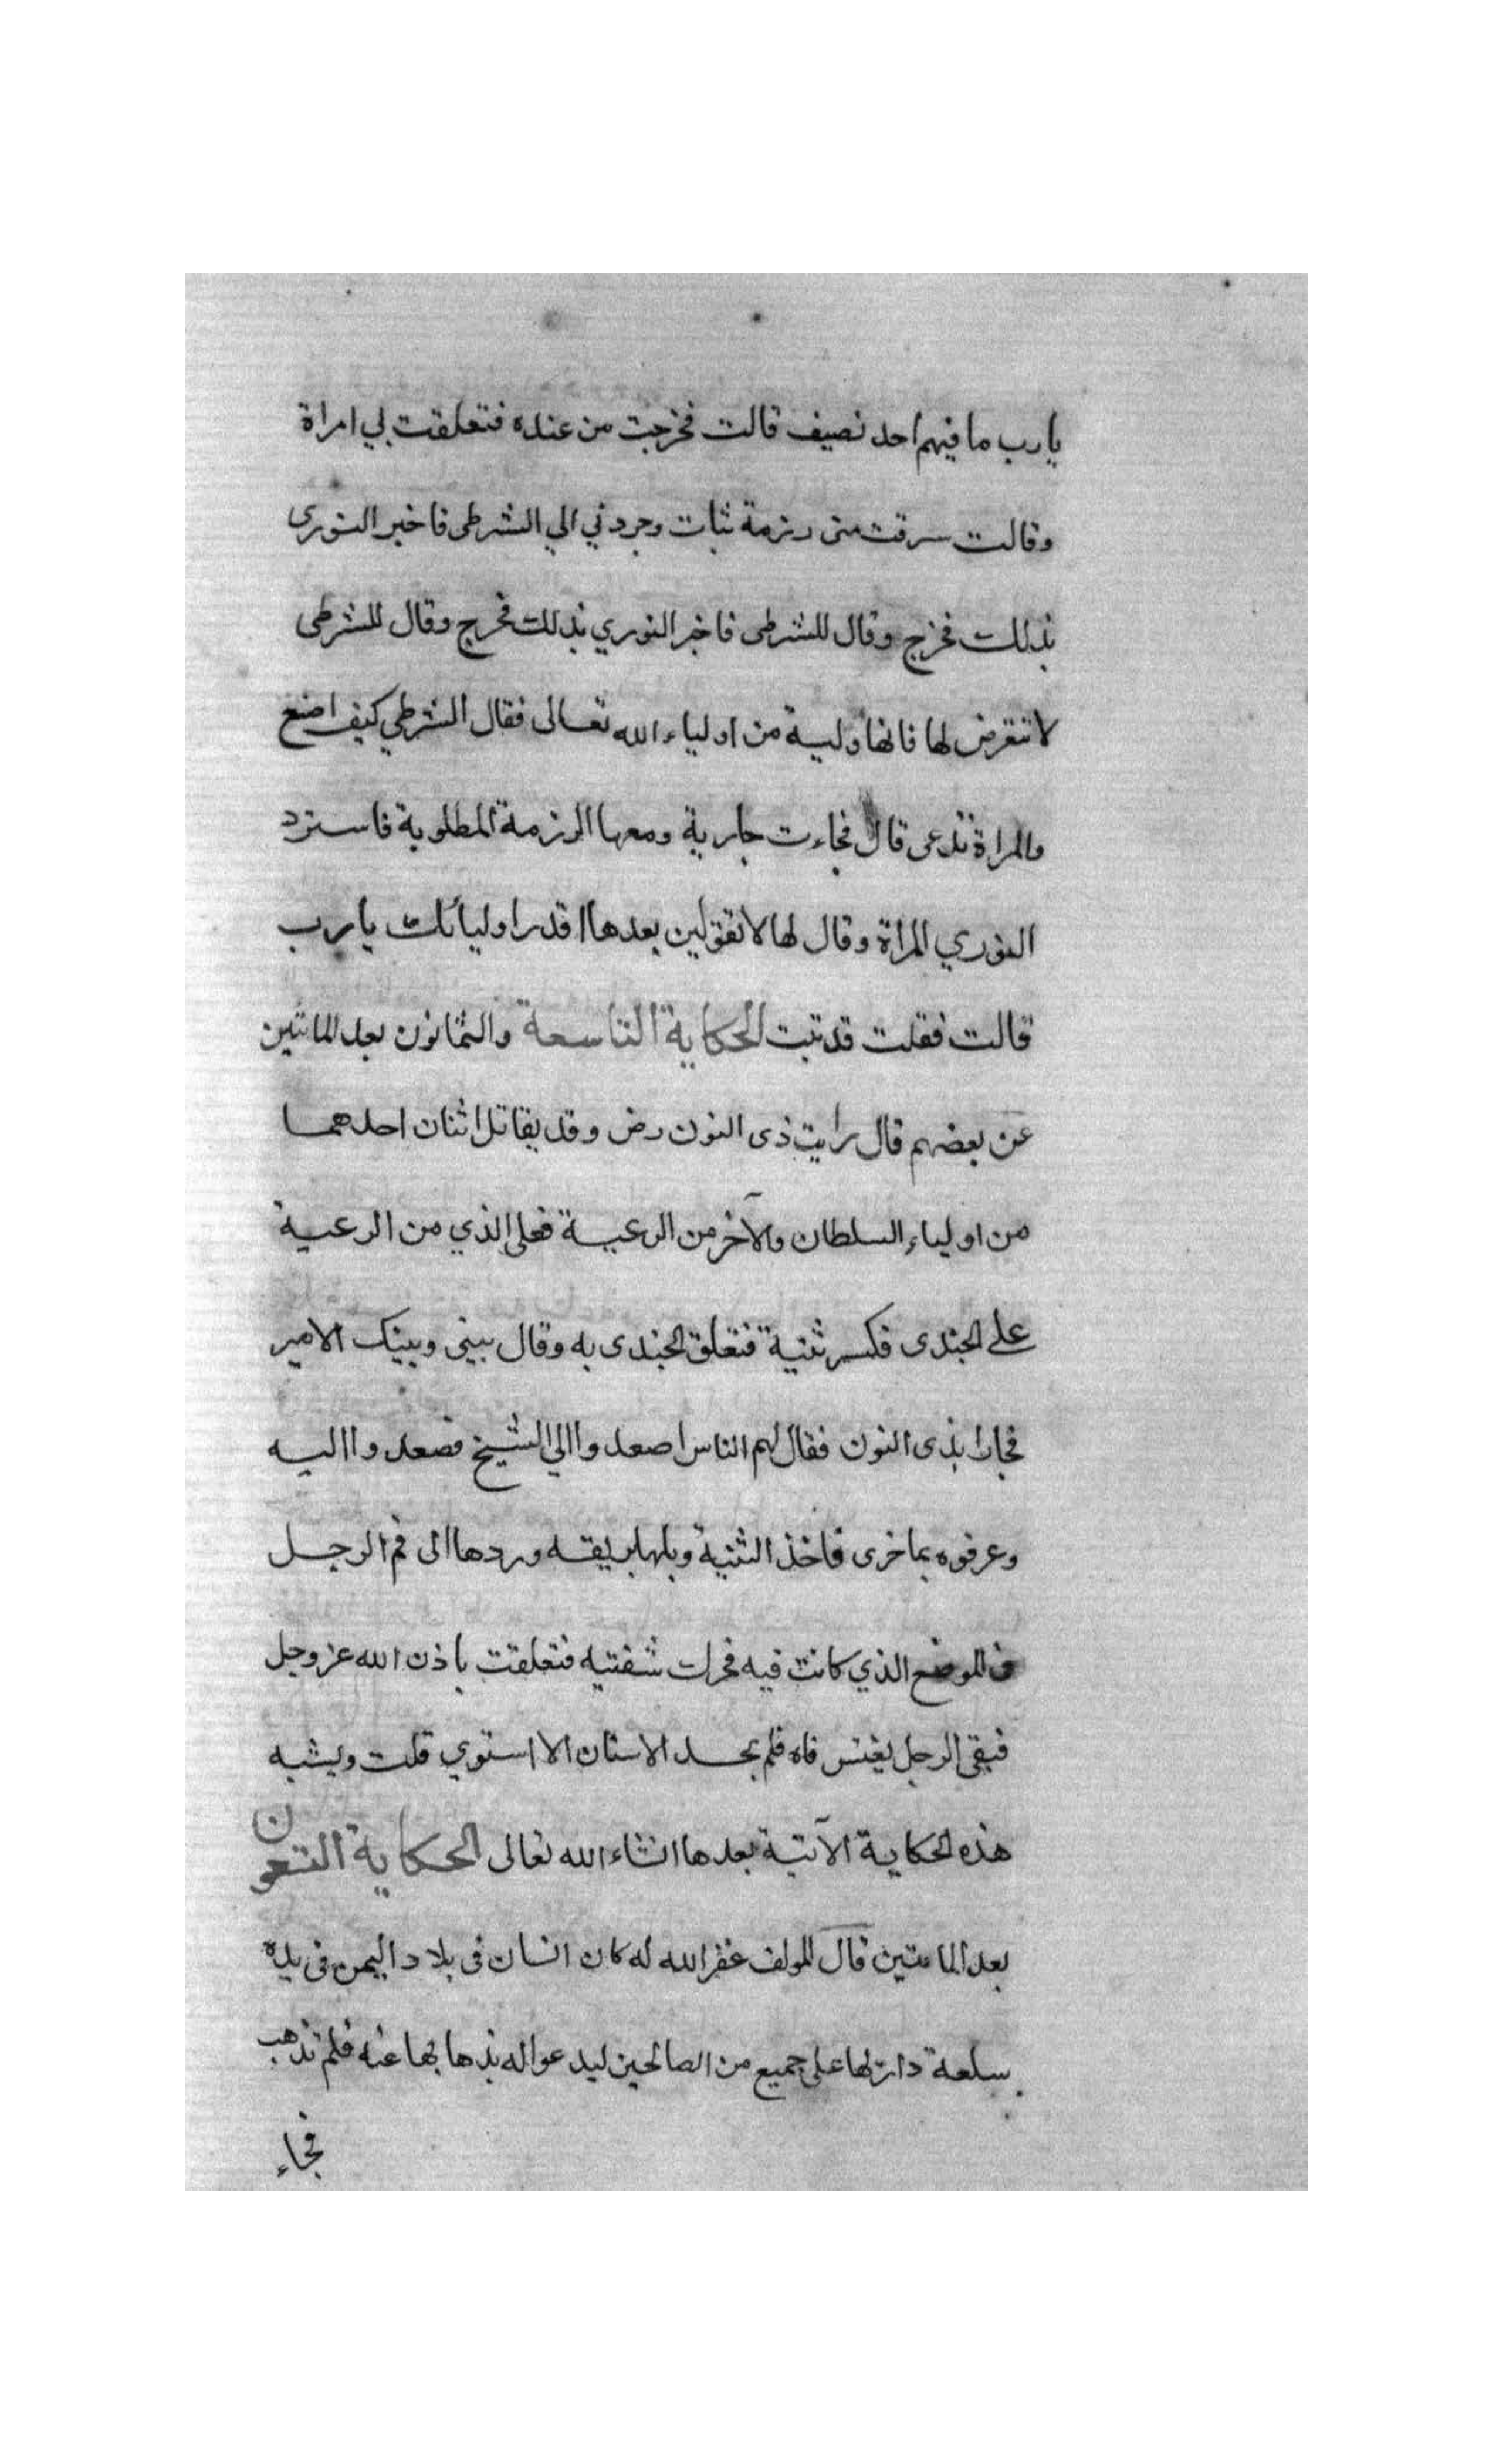 يارب ما فيهم احد نصيف قالت فخرجت من عنده فتعلقت بي امراة
وقالت سرقت منى رزمة ثبات وجردني الي الشرطى فاخبر النورى
بذلك فخرج وقال للشرطى فاخبر النوري بذلك فخرج وقال للشرطى
لا تتعرض لها فانها ولية من اولياء الله تعالى فقال الشرطي كيف اصنع
والمراة تدعى قال فجاءت جارية ومعها الرزمة المطلوبة فاسترد
النوري المراة وقال لها لا تقولين بعدها اقدر اوليائك يارب
قالت فقلت قد تبت الحكاية التاسعة والثمانون بعد المائتين
عن بعضهم قال رايت ذى النون رض وقد يقاتل اثنان احدهما
من اولياء السلطان والآخر من الرعية فعلى الذي من الرعية
على الجندى فكسر ثنية فتعلق الجندى به وقال بينى وبينك الامير
فجازا بذى النون فقال لهم الناس اصعدوا الي الشيخ فصعدوا اليه
وعرفوه بما خرى فاخذ الثنية وبلها بريقه وردها الى فم الرجل
فى الموضع الذي كانت فيه فحرك شفتيه فتعلقت باذن الله عز وجل
فبقى الرجل يفتس فاه فلم يجد الاسنان الا استوي قلت ويشبه
هذه الحكاية الآتية بعدها انشاء الله تعالى الحكاية التسعون
بعد المائتين قال المولف غفر الله له كان انسان فى بلاد اليمن فى يده
سلعة دار لها على جميع من الصالحين ليدعوا له بذهابها عنه فلم تذهب
فجاء